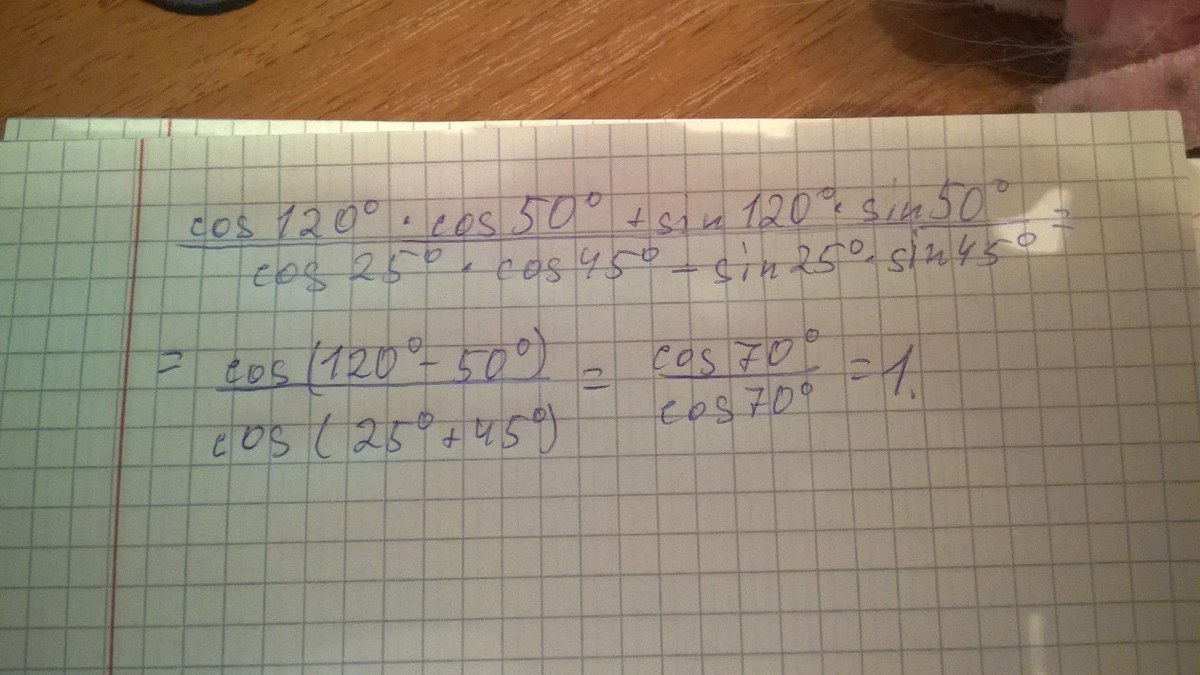 cos 120° · cos 50° + sin 120° · sin 50°
cos 25° · cos 45° - sin 25° · sin 45° =
= cos (120° - 50°) = cos 70° = 1.
cos (25° + 45°) cos 70°